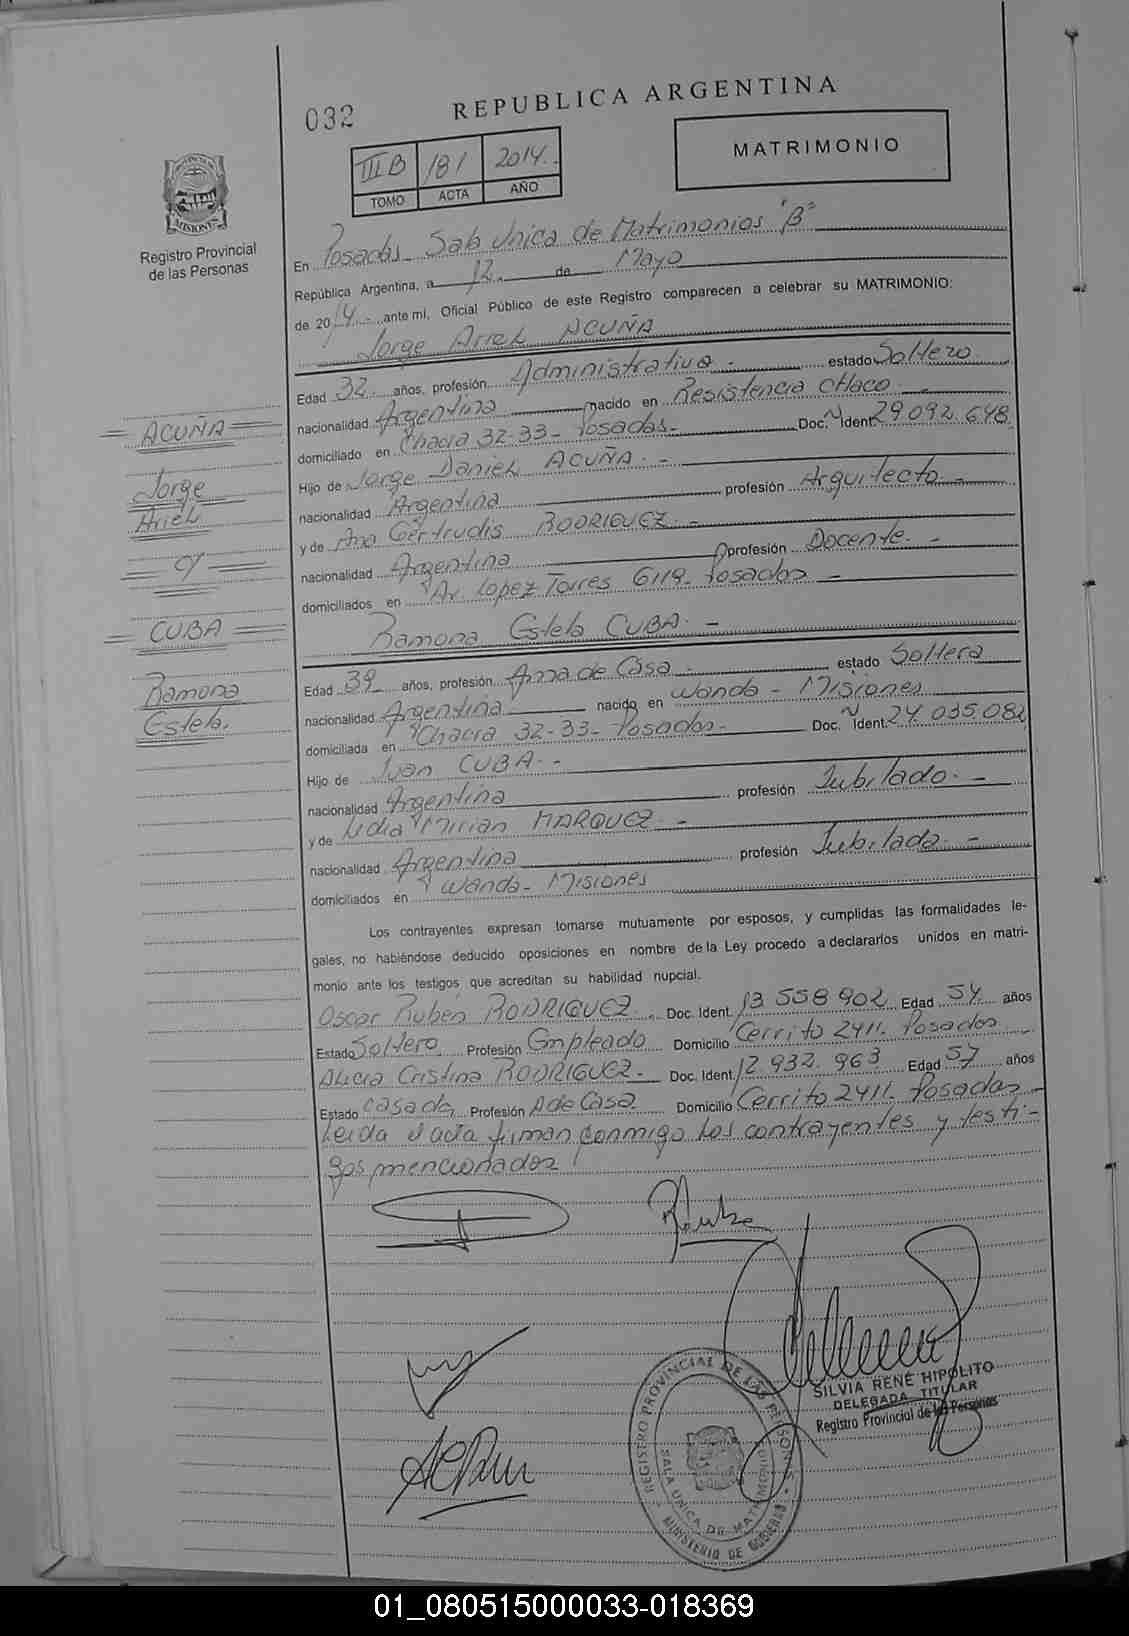 032
REPUBLICA ARGENTINA
III B 181 2014.
TOMO ACTA AÑO
MATRIMONIO
PROVINCIA DE
MISIONES
Registro Provincial
de las Personas
En Posadas Sala Unica de Matrimonios "B"
República Argentina, a 12. de Mayo
de 2014.- ante mí, Oficial Público de este Registro comparecen a celebrar su MATRIMONIO:
Jorge Ariel ACUÑA
Edad 32. años, profesión Administrativo - estado Soltero
nacionalidad Argentina nacido en Resistencia CHaco. -
domiciliado en Chacra 32-33- Posadas- Doc. N Ident. 29.092.648
Hijo de Jorge Daniel ACUÑA. -
nacionalidad Argentina profesión Arquitecto. -
y de Ana Gertrudis RODRIGUEZ. -
nacionalidad Argentina profesión Docente. -
domiciliados en Av. Lopez Torres 6119- Posadas -
Ramona Estela CUBA. -
Edad 39 años, profesión Ama de Casa estado Soltera
nacionalidad Argentina nacido en Wanda - Misiones
domiciliada en Chacra 32-33- Posadas- Doc. N Ident. 24.035.082
Hijo de Juan CUBA. -
nacionalidad Argentina profesión Jubilado. -
y de Lidia Mirian MARQUEZ. -
nacionalidad Argentina profesión Jubilada. -
domiciliados en Wanda- Misiones
Los contrayentes expresan tomarse mutuamente por esposos, y cumplidas las formalidades le-
gales, no habiéndose deducido oposiciones en nombre de la Ley procedo a declararlos unidos en matri-
monio ante los testigos que acreditan su habilidad nupcial.
Oscar Rubén RODRIGUEZ. Doc. Ident. 13.558.902 Edad 54 años
Estado Soltero Profesión Empleado Domicilio Cerrito 2411- Posadas
Alicia Cristina RODRIGUEZ- Doc. Ident. 12.932.963 Edad 57 años
Estado casada Profesión A de Casa. Domicilio Cerrito 2411- Posadas-
Leida el acta firman conmigo los contrayentes y testi-
gos mencionados
ACUÑA
Jorge
Ariel
c/
CUBA
Ramona
Estela.
SILVIA RENÉ HIPÓLITO
DELEGADA TITULAR
Registro Provincial de las Personas
REGISTRO PROVINCIAL DE LAS PERSONAS
SALA UNICA DE MATRIMONIOS
MINISTERIO DE GOBIERNO
01_080515000033-018369